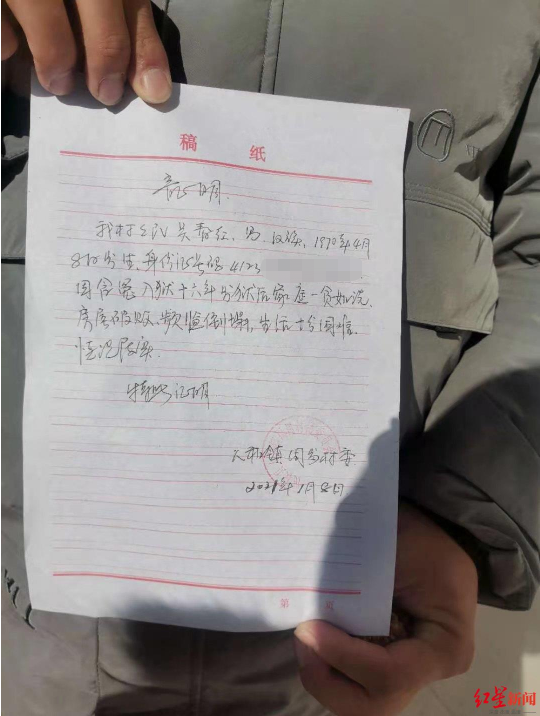 稿 纸
证明
我村村民吴春红,男,汉族,1970年4月
8日出生,身份证号码4123
因含冤入狱十六年,出狱后家庭一贫如洗,
房屋破败、频临倒塌,生活十分困难.
情况属实.
特此证明
人和镇周岗村委
2021年1月 日
第 页
红星新闻